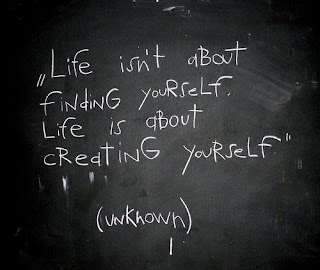 „Life isn't about
finding yourself.
Life is about
creating yourself."
(unknown)